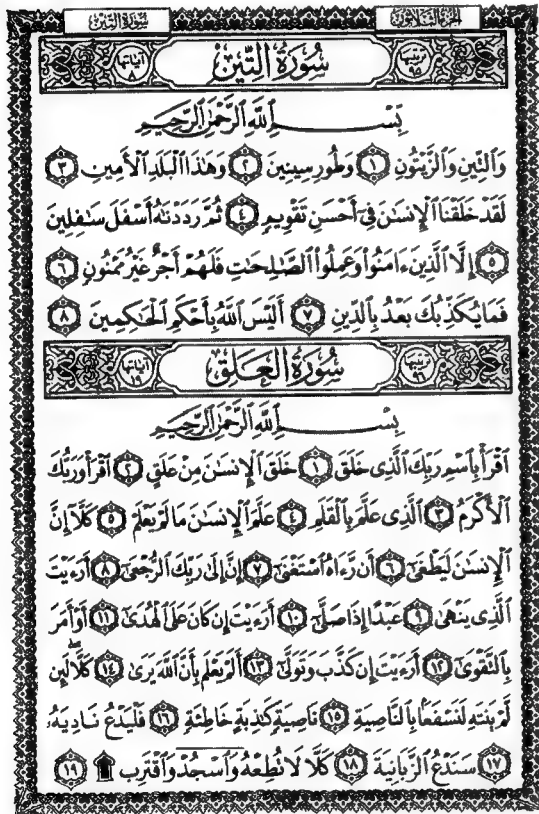 سُورَةُ التِّينِ الجُزْءُ الثَّلَاثُونَ
ترتيبها ٩٥ سُورَةُ التِّينِ آياتها ٨
بِسْمِ ٱللَّهِ ٱلرَّحْمَٰنِ ٱلرَّحِيمِ
وَٱلتِّينِ وَٱلزَّيْتُونِ ١ وَطُورِ سِينِينَ ٢ وَهَٰذَا ٱلْبَلَدِ ٱلْأَمِينِ ٣
لَقَدْ خَلَقْنَا ٱلْإِنسَٰنَ فِىٓ أَحْسَنِ تَقْوِيمٍ ٤ ثُمَّ رَدَدْنَٰهُ أَسْفَلَ سَٰفِلِينَ
٥ إِلَّا ٱلَّذِينَ ءَامَنُوا۟ وَعَمِلُوا۟ ٱلصَّٰلِحَٰتِ فَلَهُمْ أَجْرٌ غَيْرُ مَمْنُونٍ ٦
فَمَا يُكَذِّبُكَ بَعْدُ بِٱلدِّينِ ٧ أَلَيْسَ ٱللَّهُ بِأَحْكَمِ ٱلْحَٰكِمِينَ ٨
ترتيبها ٩٦ سُورَةُ العَلَقِ آياتها ١٩
بِسْمِ ٱللَّهِ ٱلرَّحْمَٰنِ ٱلرَّحِيمِ
ٱقْرَأْ بِٱسْمِ رَبِّكَ ٱلَّذِى خَلَقَ ١ خَلَقَ ٱلْإِنسَٰنَ مِنْ عَلَقٍ ٢ ٱقْرَأْ وَرَبُّكَ
ٱلْأَكْرَمُ ٣ ٱلَّذِى عَلَّمَ بِٱلْقَلَمِ ٤ عَلَّمَ ٱلْإِنسَٰنَ مَا لَمْ يَعْلَمْ ٥ كَلَّآ إِنَّ
ٱلْإِنسَٰنَ لَيَطْغَىٰٓ ٦ أَن رَّءَاهُ ٱسْتَغْنَىٰٓ ٧ إِنَّ إِلَىٰ رَبِّكَ ٱلرُّجْعَىٰٓ ٨ أَرَءَيْتَ
ٱلَّذِى يَنْهَىٰ ٩ عَبْدًا إِذَا صَلَّىٰٓ ١٠ أَرَءَيْتَ إِن كَانَ عَلَى ٱلْهُدَىٰٓ ١١ أَوْ أَمَرَ
بِٱلتَّقْوَىٰٓ ١٢ أَرَءَيْتَ إِن كَذَّبَ وَتَوَلَّىٰٓ ١٣ أَلَمْ يَعْلَم بِأَنَّ ٱللَّهَ يَرَىٰ ١٤ كَلَّا لَئِن
لَّمْ يَنتَهِ لَنَسْفَعًۢا بِٱلنَّاصِيَةِ ١٥ نَاصِيَةٍ كَٰذِبَةٍ خَاطِئَةٍ ١٦ فَلْيَدْعُ نَادِيَهُۥ
١٧ سَنَدْعُ ٱلزَّبَانِيَةَ ١٨ كَلَّا لَا تُطِعْهُ وَٱسْجُدْ وَٱقْتَرِب ۩ ١٩